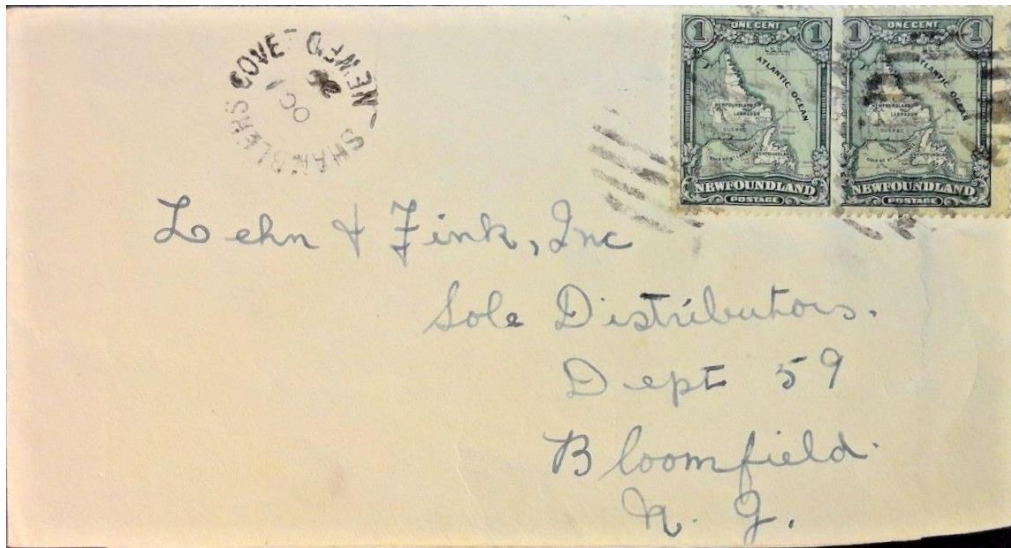 SHAMBLERS COVE NEWFD
OC 1
ONE CENT
1 1
ATLANTIC OCEAN
NEWFOUNDLAND
LABRADOR
QUEBEC
NEWFOUNDLAND
POSTAGE
ONE CENT
1 1
ATLANTIC OCEAN
NEWFOUNDLAND
POSTAGE
Lehn & Fink, Inc
Sole Distributors.
Dept 59
Bloomfield.
N. J.